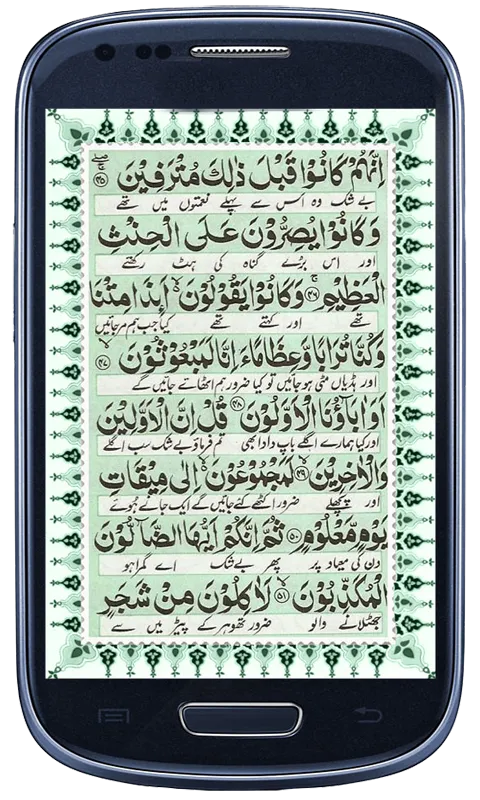 اِنَّهُمْ كَانُوْا قَبْلَ ذٰلِكَ مُتْرَفِيْنَ ۴۵
بے شک وہ اس سے پہلے نعمتوں میں تھے
وَكَانُوْا يُصِرُّوْنَ عَلَى الْحِنْثِ
اور اس بڑے گناہ کی ہٹ رکھتے
الْعَظِيْمِ ۴۶ وَكَانُوْا يَقُوْلُوْنَ اَئِذَا مِتْنَا
تھے اور کہتے تھے کیا جب ہم مر جائیں
وَكُنَّا تُرَابًا وَّعِظَامًا ءَاِنَّا لَمَبْعُوْثُوْنَ ۴۷
اور ہڈیاں مٹی ہو جائیں تو کیا ضرور ہم اٹھائے جائیں گے
اَوَاٰبَآؤُنَا الْاَوَّلُوْنَ ۴۸ قُلْ اِنَّ الْاَوَّلِيْنَ
اور کیا ہمارے اگلے باپ دادا بھی تم فرماؤ بے شک سب اگلے
وَالْاٰخِرِيْنَ ۴۹ لَمَجْمُوْعُوْنَ اِلٰى مِيْقَاتِ
اور پچھلے ضرور اکٹھے کئے جائیں گے ایک جانے ہوئے
يَوْمٍ مَّعْلُوْمٍ ۵۰ ثُمَّ اِنَّكُمْ اَيُّهَا الضَّآلُّوْنَ
دن کی میعاد پر پھر بے شک اے گمراہو
الْمُكَذِّبُوْنَ ۵۱ لَاٰكِلُوْنَ مِنْ شَجَرٍ
جھٹلانے والو ضرور تھوہر کے پیڑ میں سے